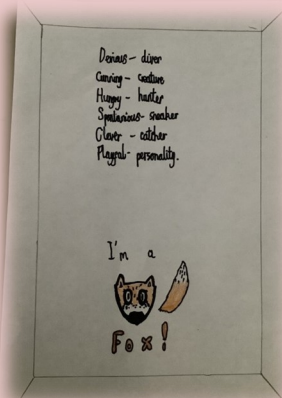 Devious - diver
Cunning - creature
Hungry - hunter
Spontanious - sneaker
Clever - catcher
Playful - personality.
I'm a
Fox!